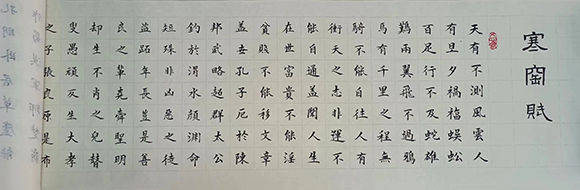 寒窰賦
天有不測風雲人
有旦夕禍福蜈蚣
百足行不及蛇雄
鷄兩翼飛不過鴉
馬有千里之程無
騎不能自往人有
衝天之志非運不
能自通蓋聞人生
在世富貴不能淫
貧賤不能移文章
蓋世孔子厄於陳
邦武略超群太公
釣於渭水顏淵命
短殊非凶惡之徒
盜跖年長豈是善
良之輩堯舜聖明
却生不肖之兒瞽
叟愚頑反生大孝
之子張良原是布